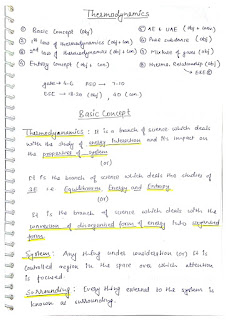 Thermodynamics
① Basic Concept (obj)
② 1st law of thermodynamics (obj + con)
③ 2nd law of thermodynamics (obj + con)
④ Entropy Concept (obj + con)
⑤ AE & UAE (obj + con)
⑥ Pure substance (obj)
⑦ Mixture of gases (obj)
⑧ Thermo. Relationship (obj)
gate → 4-6 PSU → 7-10
ESE → 18-20 (obj), 40 (con)
Basic Concept
Thermodynamics : It is a branch of science which deals
with the study of energy Interaction and its impact on
the properties of system
(or)
It is the branch of science which deals the studies of
3E i.e. Equilibrium Energy and Entropy
(or)
It is the branch of science which deals with the
conversion of disorganised form of energy into organised
forms
System : Any thing under consideration (or) It is
controlled region in the space over which attention
is focused.
Surrounding : Every thing external to the system is
known as surrounding.